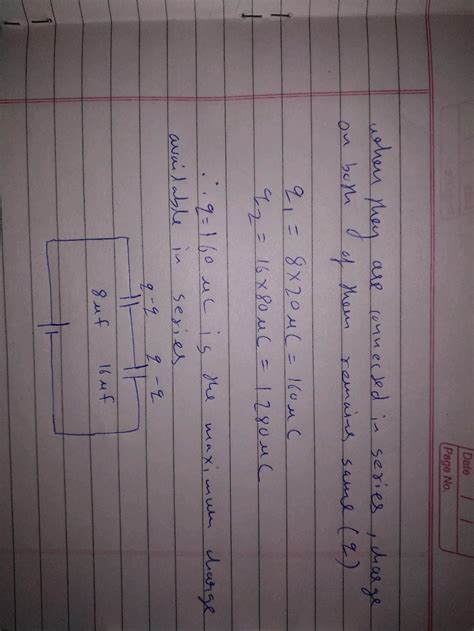 Date
Page No.
when they are connected in series, charge
on both of them remains same (q)
q₁ = 8×20μC = 160μC
q₂ = 16×80μC = 1280μC
∴ q=160 μC is the maximum charge
available in series
q -q q -q
8μf 16μf